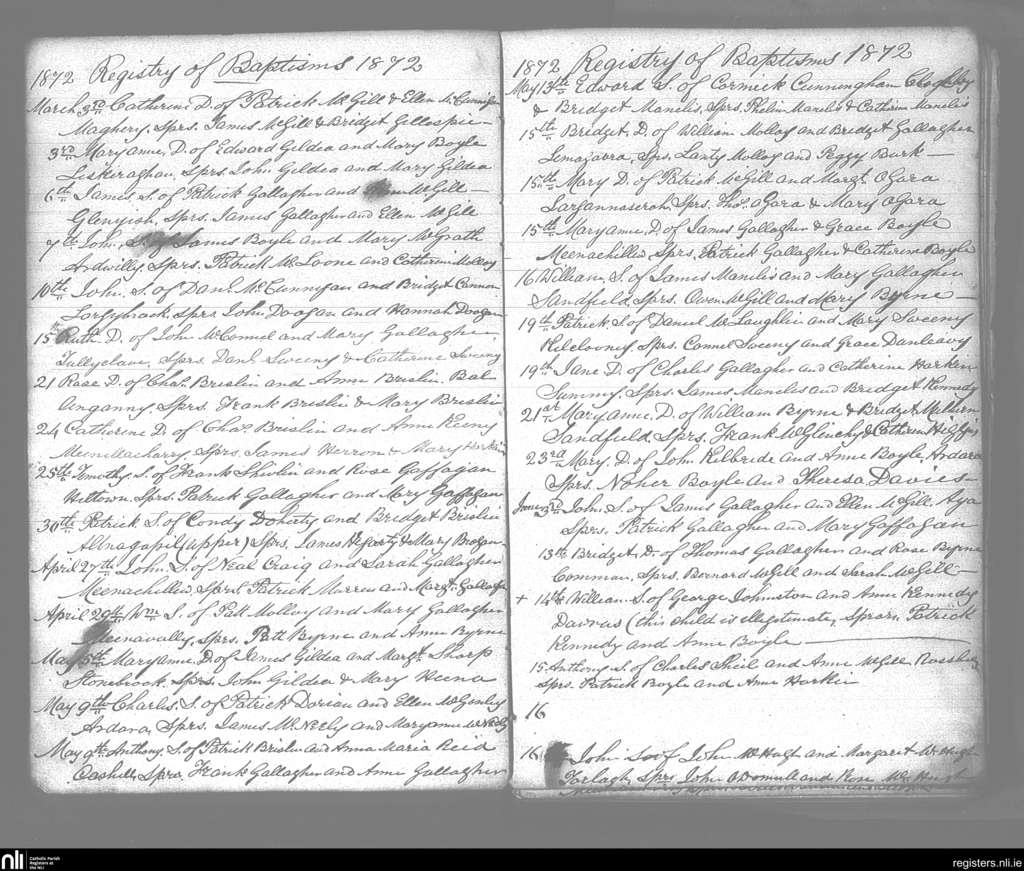 1872 Registry of Baptisms 1872
March 3rd Catherine D. of Patrick McGill & Ellen McCunnigan
Maghery, Sprs. James McGill & Bridget Gillespie
3rd Maryanne, D. of Edward Gildea and Mary Boyle
Liskeraghan, Sprs. John Gildea and Mary Gildea
6th James, S. of Patrick Gallagher and McGill
Glenyish, Sprs. James Gallagher and Ellen McGill
7th John, S. of James Boyle and Mary McGrath
Ardwilly, Sprs. Patrick McLoone and Catherine Molloy
10th John. S. of Danl. McCunnigan and Bridget Cannon
Sprs John Doogan and Hannah Doogan
15th Ruth. D. of John McConnel and Mary Gallagher
Tullyclave, Sprs. Danl. Sweeny & Catherine Sweeny
21 Rose D. of Chas. Breslin and Anne Breslin. Bal
Sprs. Frank Breslin & Mary Breslin
24 Catherine D. of Chas. Breslin and Anne Keeny
Meenmullacharry, Sprs. James Herron & Mary Harkin
25th Timothy S. of Frank Shevlin and Rose Gaffagan
Sprs. Patrick Gallagher and Mary Gaffagan
30th Patrick S. of Condy Doherty and Bridget Breslin
(upper) Sprs. James Hegarty & Mary Brogan
April 27th John S. of Neal Craig and Sarah Gallagher
Meenachillin, Sprs. Patrick Murren and Margt. Gallagher
April 29th Wm S. of Patt Molloy and Mary Gallagher
Meenavally, Sprs. Patt Byrne and Anne Byrne
May 5th Maryanne, D. of James Gildea and Margt. Sharp
Stonebrook, Sprs. John Gildea & Mary Keena
May 9th Charles, S. of Patrick Dorian and Ellen McGinley
Ardara, Sprs. James McNeely and Maryanne McNeely
May 9th Anthony, S. of Patrick Breslin and Anna Maria Reid
Cashill, Sprs. Frank Gallagher and Anne Gallagher
1872 Registry of Baptisms 1872
May 13th Edward S. of Cormick Cunningham
& Bridget Manelis, Sprs. Phelim Manelis & Catherine Manelis
15th Bridget, D. of William Molloy and Bridget Gallagher
Sprs. Lanty Molloy and Peggy Burk
15th Mary D. of Patrick McGill and Margt. OGara
Sprs. Thos. OGara & Mary OGara
15th Maryanne, D. of James Gallagher & Grace Boyle
Meenachillin, Sprs. Patrick Gallagher & Catherine Boyle
16 William, S. of James Manelis and Mary Gallagher
Sandfield, Sprs. Owen McGill and Mary Byrne
19th Patrick S. of Daniel McLaughlin and Mary Sweeny
Kilclooney, Sprs. Connel Sweeny and Grace Danleavy
19th Jane D. of Charles Gallagher and Catherine Harkin
Summy, Sprs. James Manelis and Bridget Kennedy
21st Maryanne, D. of William Byrne & Bridget
Sandfield, Sprs. Frank McGlinchy & Catherine
23rd Mary, D. of John Kilbride and Anne Boyle, Ardara
Sprs. Noher Boyle and Theresa Davies
June 3rd John, S. of James Gallagher and Ellen McGill. Aga
Sprs. Patrick Gallagher and Mary Gaffagan
13th Bridget, D. of Thomas Gallagher and Rose Byrne
Common, Sprs. Bernard McGill and Sarah McGill
+ 14th William S. of George Johnston and Anne Kennedy
Dawros (this child is illegitimate, Sprs, Patrick
Kennedy and Anne Boyle
15 Anthony S. of Charles Sheil and Anne McGill Rossbeg
Sprs. Patrick Boyle and Anne Harkin
16
16 John Son of John McHugh and Margaret McHugh
Torlagh, Sprs John ODonnell and Rose McHugh
nli
Catholic Parish
Registers at
the NLI
registers.nli.ie